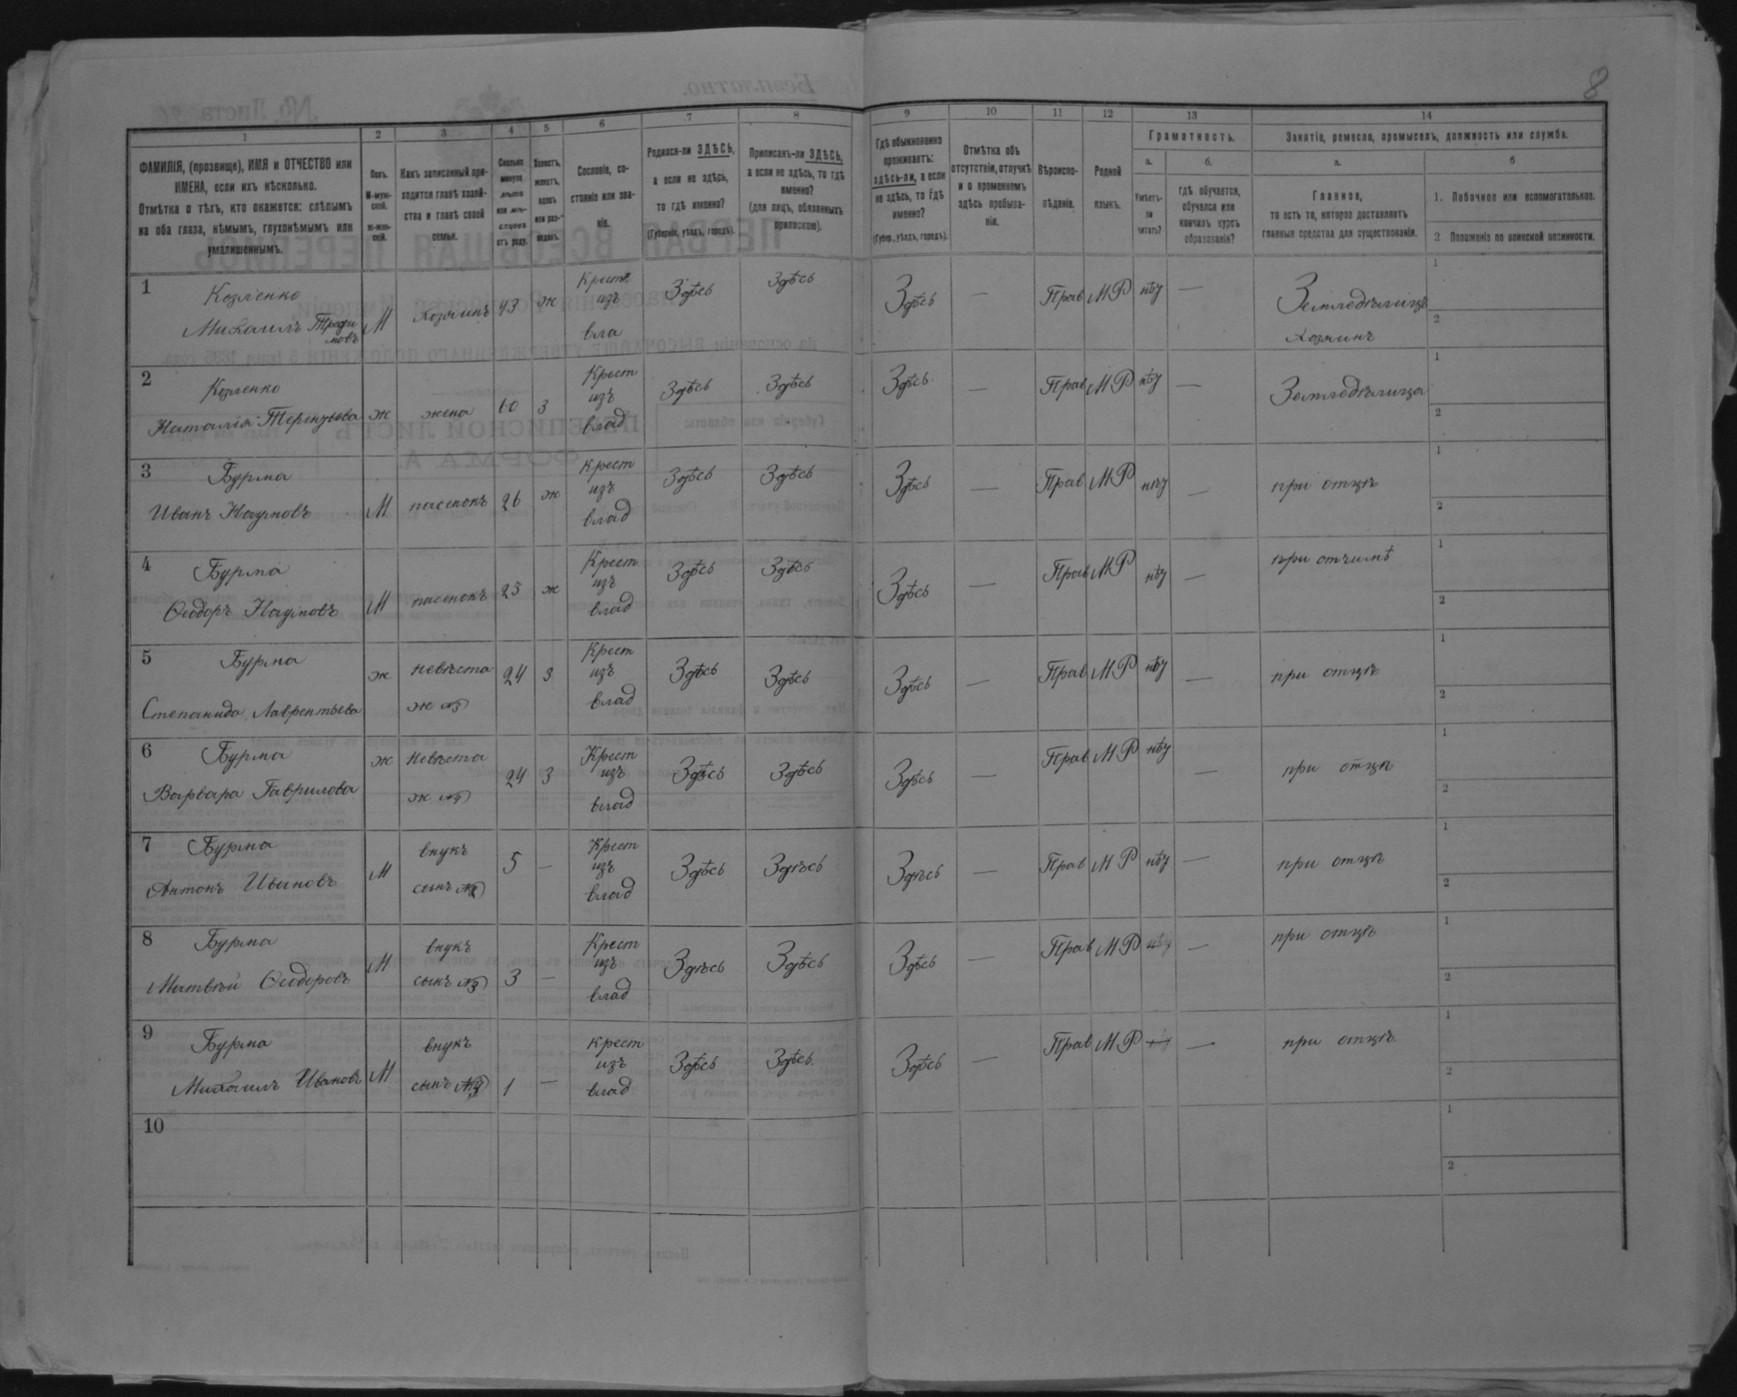 8
1 2 3 4 5 6 7 8 9 10 11 12 13 14
ФАМИЛІЯ, (прозвище), ИМЯ и ОТЧЕСТВО или
ИМЕНА, если ихъ нѣсколько.
Отмѣтка о тѣхъ, кто окажется: слѣпымъ
на оба глаза, нѣмымъ, глухонѣмымъ или
умалишеннымъ.
Полъ.
М-муж-
ской.
Ж-жен-
скій.
Какъ записанный при-
ходится главѣ хозяй-
ства и главѣ своей
семьи.
Сколько
минуло
лѣтъ
или мѣ-
сяцевъ
отъ роду.
Холостъ,
женатъ,
вдовъ
или раз-
веденъ.
Сословіе, со-
стояніе или зва-
ніе.
Родился-ли ЗДѢСЬ,
а если не здѣсь,
то гдѣ именно?
(Губернія, уѣздъ, городъ).
Приписанъ-ли ЗДѢСЬ,
а если не здѣсь, то гдѣ
именно?
(для лицъ, обязанныхъ
припискою).
Гдѣ обыкновенно
проживаетъ:
здѣсь-ли, а если
не здѣсь, то гдѣ
именно?
(Губер., уѣздъ, городъ).
Отмѣтка объ
отсутствіи, отлучкѣ
и о временномъ
здѣсь пребыва-
ніи.
Вѣроиспо-
вѣданіе.
Родной
языкъ.
Грамотность.
а.
Умѣетъ-
ли
читать?
б.
гдѣ обучается,
обучался или
кончилъ курсъ
образованія?
Занятіе, ремесло, промыселъ, должность или служба.
а.
Главное,
то есть то, которое доставляетъ
главныя средства для существованія.
б
1. Побочное или вспомогательное.
2 Положеніе по воинской повинности.
1 Козленко
Михаилъ М хозяинъ 43 ж Крест изъ вла Здѣсь Здѣсь Здѣсь — Прав МР нѣт — Земледѣлецъ
Хозяинъ
1
2
2 Козленко
Наталія Терентьева ж жена 60 З Крест изъ влад Здѣсь Здѣсь Здѣсь — Прав МР нѣт — Земледѣлица
1
2
3 Бурма
Иванъ Наумовъ М пасенокъ 26 ж Крест изъ влад Здѣсь Здѣсь Здѣсь — Прав МР нѣт — при отцѣ
1
2
4 Бурма
Ѳеодоръ Наумовъ М пасенокъ 25 ж Крест изъ влад Здѣсь Здѣсь Здѣсь — Прав МР нѣт — при отчимѣ
1
2
5 Бурма
Степанида Лаврентьева ж невѣста ж 24 З Крест изъ влад Здѣсь Здѣсь Здѣсь — Прав МР нѣт — при отцѣ
1
2
6 Бурма
Варвара Гаврилова ж невѣста ж 24 З Крест изъ влад Здѣсь Здѣсь Здѣсь — Прав МР нѣт — при отцѣ
1
2
7 Бурма
Антонъ Ивановъ М внукъ сынъ 5 — Крест изъ влад Здѣсь Здѣсь Здѣсь — Прав МР нѣт — при отцѣ
1
2
8 Бурма
Матвѣй Ѳеодоровъ М внукъ сынъ 3 — Крест изъ влад Здѣсь Здѣсь Здѣсь — Прав МР нѣт — при отцѣ
1
2
9 Бурма
Михаилъ Ивановъ М внукъ сынъ 1 — крест изъ влад Здѣсь Здѣсь Здѣсь — Прав МР — при отцѣ
1
2
10
1
2